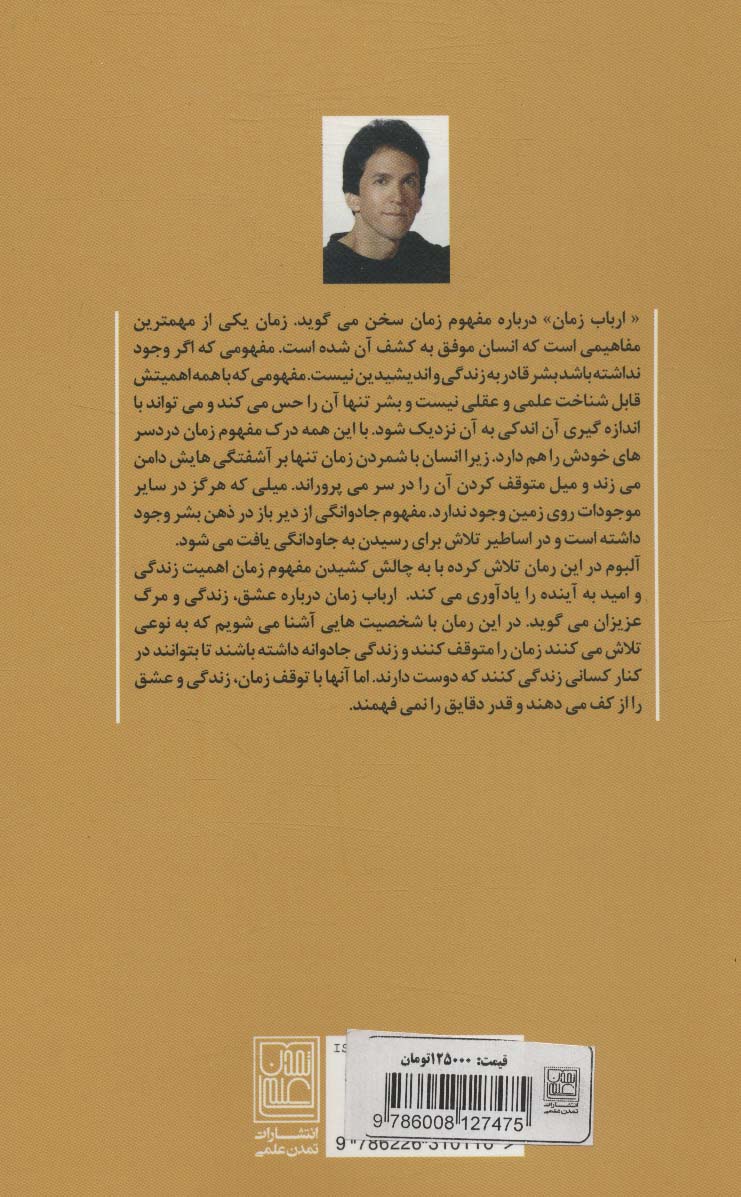 « ارباب زمان» درباره مفهوم زمان سخن می گوید. زمان یکی از مهمترین
مفاهیمی است که انسان موفق به کشف آن شده است. مفهومی که اگر وجود
نداشته باشد بشر قادر به زندگی و اندیشیدین نیست. مفهومی که با همه اهمیتش
قابل شناخت علمی و عقلی نیست و بشر تنها آن را حس می کند و می تواند با
اندازه گیری آن اندکی به آن نزدیک شود. با این همه درک مفهوم زمان دردسر
های خودش را هم دارد. زیرا انسان با شمردن زمان تنها بر آشفتگی هایش دامن
می زند و میل متوقف کردن آن را در سر می پروراند. میلی که هرگز در سایر
موجودات روی زمین وجود ندارد. مفهوم جادوانگی از دیر باز در ذهن بشر وجود
داشته است و در اساطیر تلاش برای رسیدن به جاودانگی یافت می شود.
آلبوم در این رمان تلاش کرده با به چالش کشیدن مفهوم زمان اهمیت زندگی
و امید به آینده را یادآوری می کند. ارباب زمان درباره عشق، زندگی و مرگ
عزیزان می گوید. در این رمان با شخصیت هایی آشنا می شویم که به نوعی
تلاش می کنند زمان را متوقف کنند و زندگی جادوانه داشته باشند تا بتوانند در
کنار کسانی زندگی کنند که دوست دارند. اما آنها با توقف زمان، زندگی و عشق
را از کف می دهند و قدر دقایق را نمی فهمند.
قیمت: ۱۲۵۰۰۰تومان
9 786008 127475
تمدن علمی
انتشارات
تمدن علمی
تمدن علمی
انتشارات
تمدن علمی